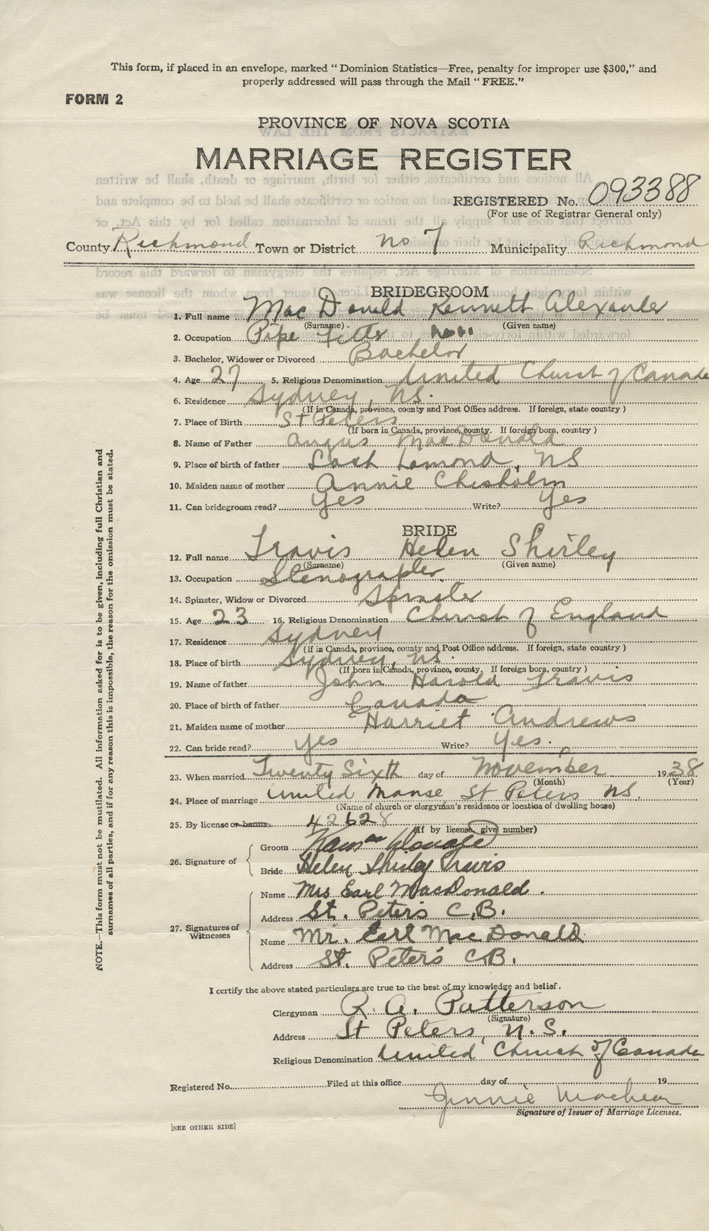 This form, if placed in an envelope, marked " Dominion Statistics—Free, penalty for improper use $300," and
properly addressed will pass through the Mail " FREE."
FORM 2
PROVINCE OF NOVA SCOTIA
MARRIAGE REGISTER
REGISTERED No. 093388
(For use of Registrar General only)
County Richmond Town or District no 7 Municipality Richmond
BRIDEGROOM
1. Full name MacDonald Kenneth Alexander
(Surname) (Given name)
2. Occupation Pipe Fitter
3. Bachelor, Widower or Divorced Bachelor
4. Age 27 5. Religious Denomination United Church of Canada
6. Residence Sydney, NS.
(If in Canada, province, county and Post Office address. If foreign, state country )
7. Place of Birth St Peters
(If born in Canada, province, county. If foreign born, country )
8. Name of Father Angus MacDonald
9. Place of birth of father Loch Lomond, NS
10. Maiden name of mother Annie Chisholm
11. Can bridegroom read? Yes Write? Yes
BRIDE
12. Full name Travis Helen Shirley
(Surname) (Given name)
13. Occupation Stenographer
14. Spinster, Widow or Divorced Spinster
15. Age 23 16. Religious Denomination Church of England
17. Residence Sydney
(If in Canada, province, county and Post Office address. If foreign, state country )
18. Place of birth Sydney, NS.
(If born in Canada, province, county. If foreign born, country )
19. Name of father John Harold Travis
20. Place of birth of father Canada
21. Maiden name of mother Harriet Andrews
22. Can bride read? Yes Write? Yes.
23. When married Twenty Sixth day of November 1938
(Month) (Year)
24. Place of marriage United Manse St Peters NS.
(Name of church or clergyman's residence or location of dwelling house)
25. By license or banns 42628
(If by license, give number)
26. Signature of
Groom
Bride Helen Shirley Travis
27. Signatures of Witnesses
Name Mrs Earl MacDonald.
Address St. Peter's C.B.
Name Mr. Earl MacDonald
Address St. Peter's C.B.
I certify the above stated particulars are true to the best of my knowledge and belief.
Clergyman R. A. Patterson
(Signature)
Address St Peters, N.S.
Religious Denomination United Church of Canada
Registered No. Filed at this office day of 19
Jennie
Signature of Issuer of Marriage Licenses.
[SEE OTHER SIDE]
NOTE.—This form must not be mutilated. All information asked for is to be given, including full Christian and
surnames of all parties, and if for any reason this is impossible, the reason for the omission must be stated.